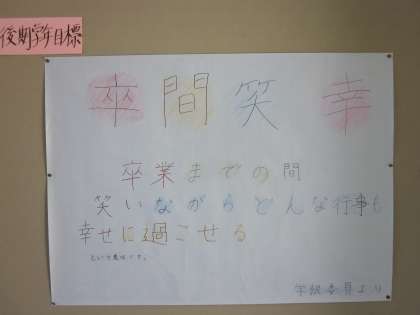 後期学年目標
卒間笑幸
卒業までの間
笑いながらどんな行事も
幸せに過ごせる
という意味です。
学級委員より